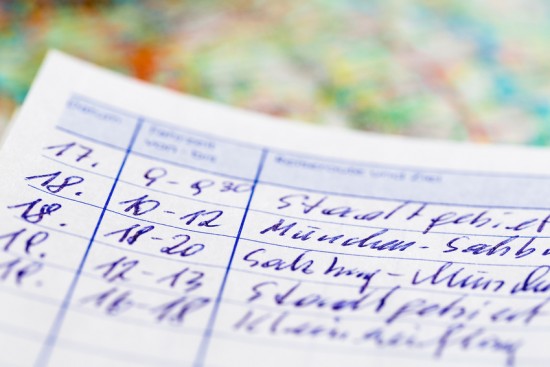 Datum Fahrzeit von - bis Reiseroute und Ziel
17. 9-9 30 Stadtgebiet
18. 10-12 München-Salzbu
18. 18-20 Salzburg-Münche
19. 12-13 Stadtgebiet
19. 16-18